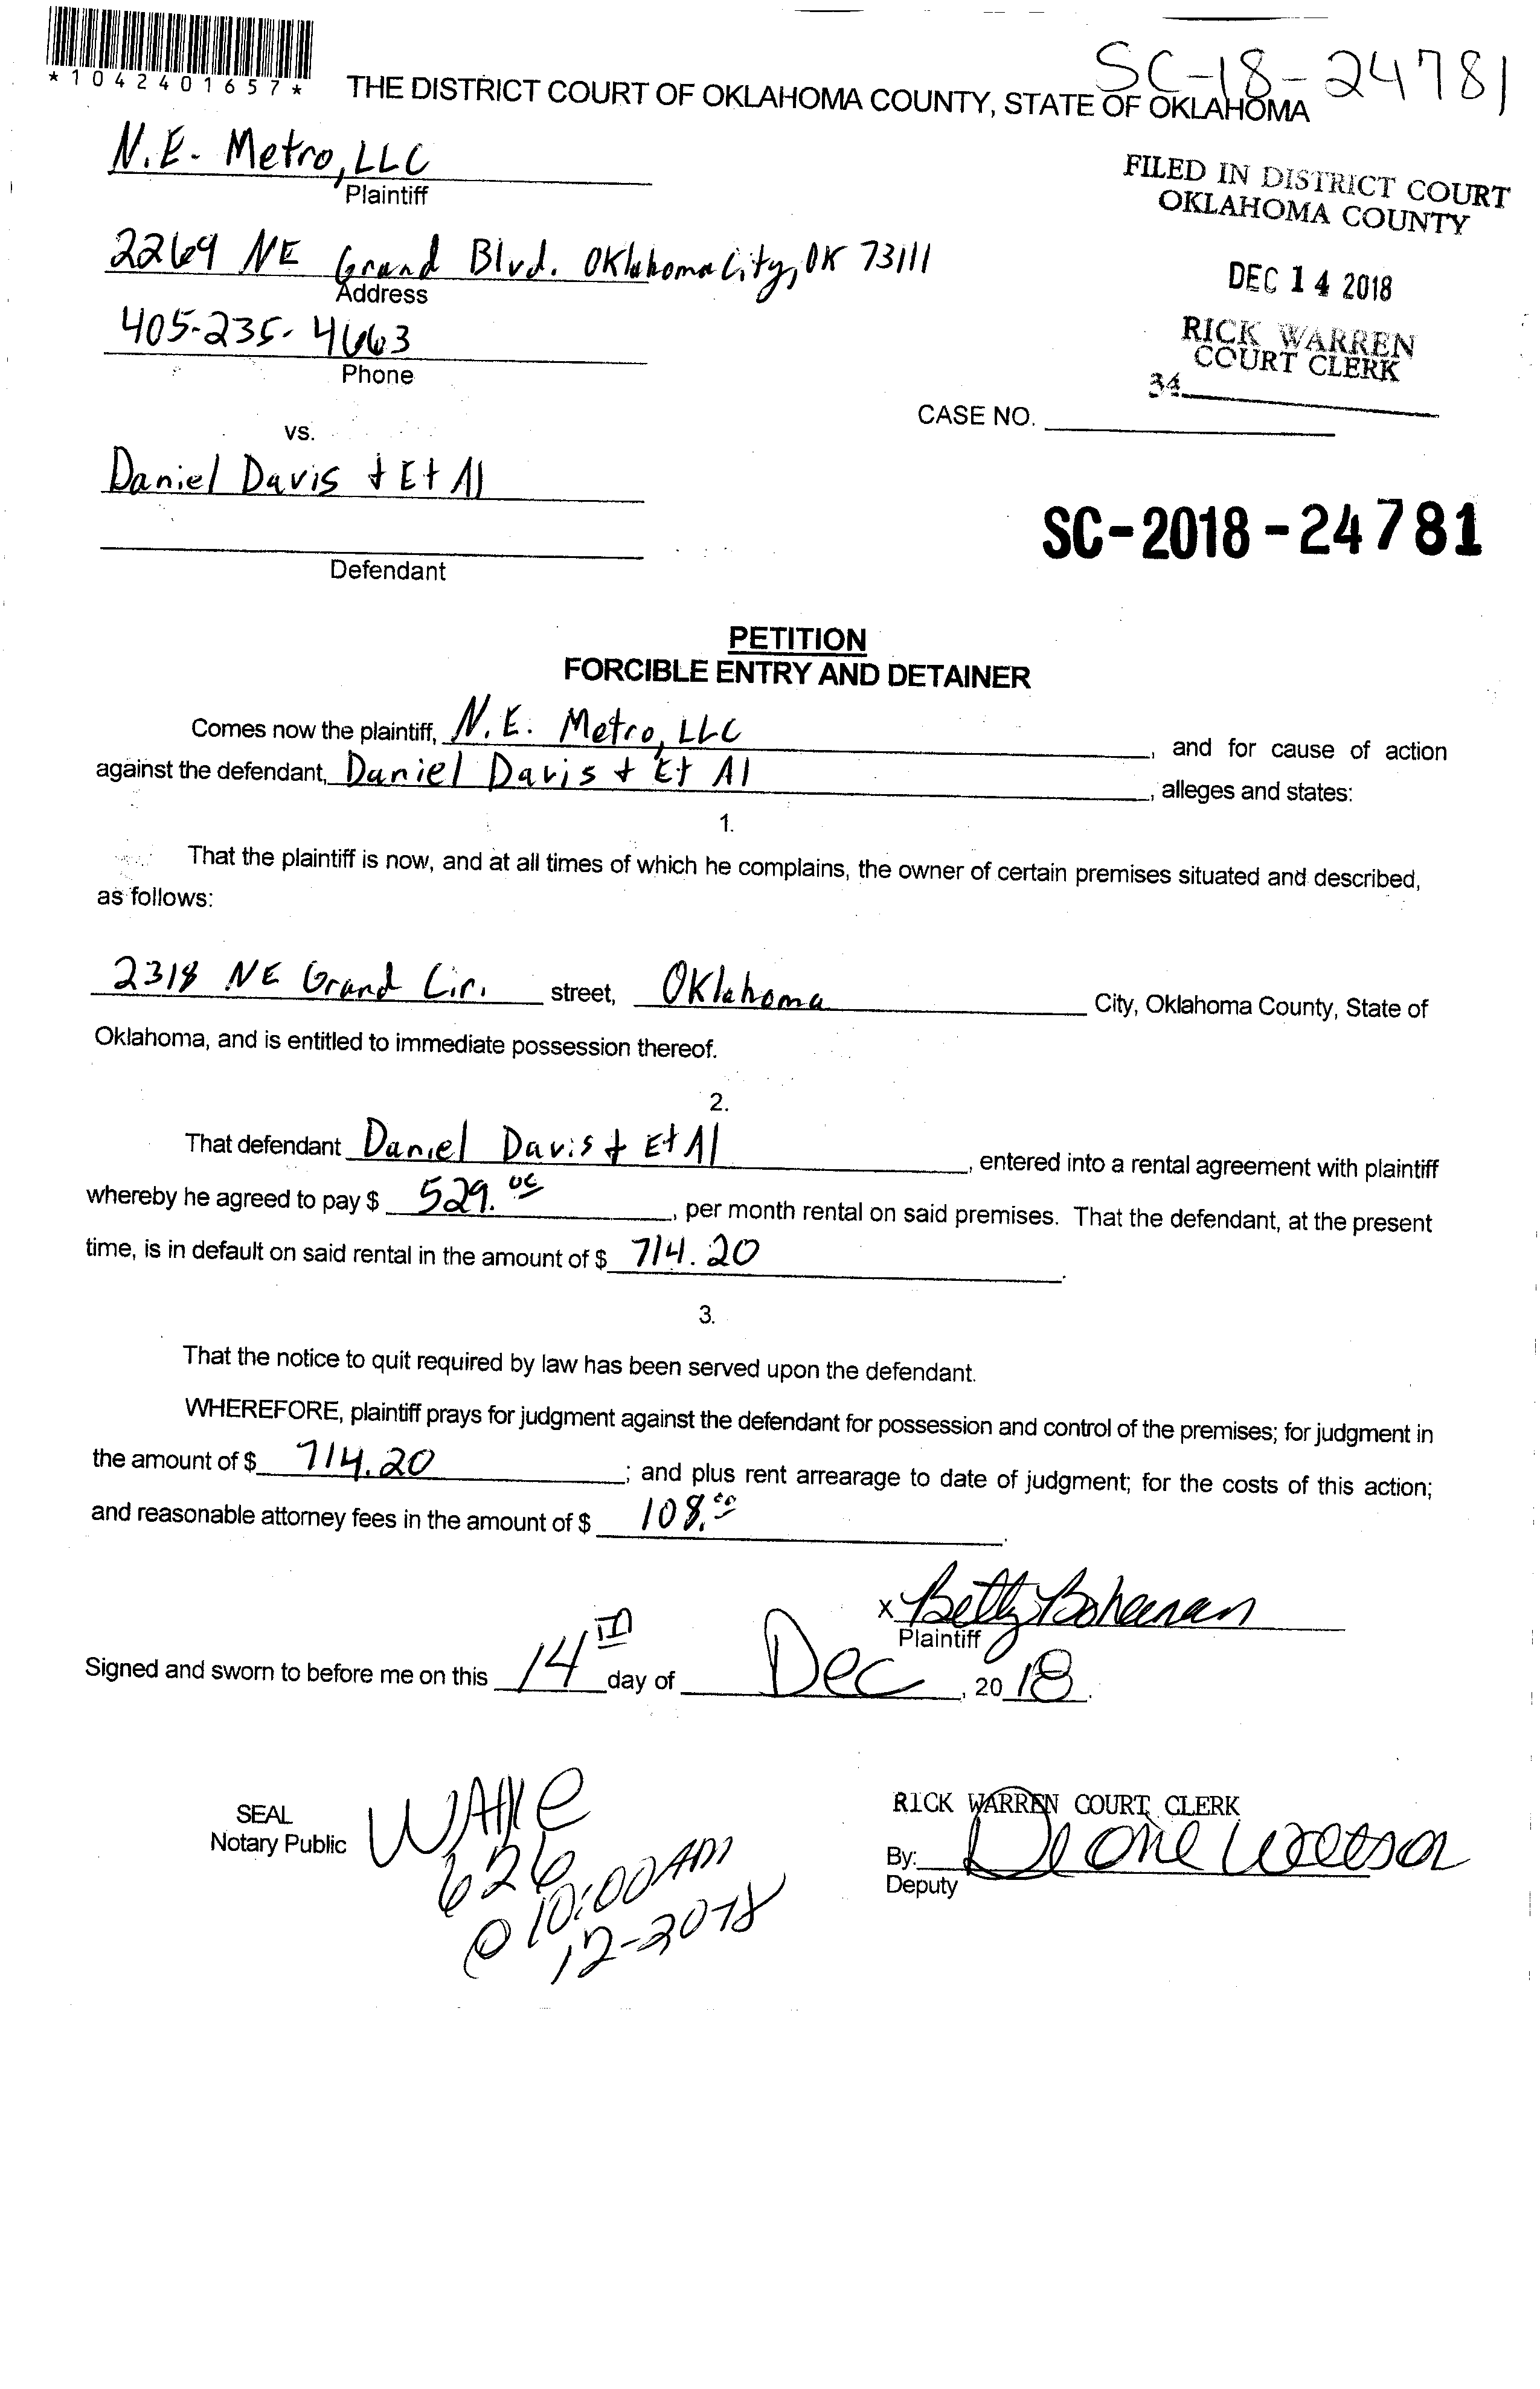 *1042401657*
SC-18-24781
THE DISTRICT COURT OF OKLAHOMA COUNTY, STATE OF OKLAHOMA
N.E. Metro, LLC
Plaintiff
FILED IN DISTRICT COURT
OKLAHOMA COUNTY
2269 NE Grand Blvd. Oklahoma City, OK 73111
Address
DEC 14 2018
405-235-4663
Phone
RICK WARREN
COURT CLERK
34
CASE NO.
vs.
Daniel Davis + Et Al
SC-2018-24781
Defendant
PETITION
FORCIBLE ENTRY AND DETAINER
Comes now the plaintiff, N.E. Metro, LLC, and for cause of action
against the defendant, Daniel Davis + Et Al, alleges and states:
1.
That the plaintiff is now, and at all times of which he complains, the owner of certain premises situated and described,
as follows:
2318 NE Grand Cir. street, Oklahoma City, Oklahoma County, State of
Oklahoma, and is entitled to immediate possession thereof.
2.
That defendant Daniel Davis + Et Al, entered into a rental agreement with plaintiff
whereby he agreed to pay $ 529.00, per month rental on said premises. That the defendant, at the present
time, is in default on said rental in the amount of $ 714.20.
3.
That the notice to quit required by law has been served upon the defendant.
WHEREFORE, plaintiff prays for judgment against the defendant for possession and control of the premises; for judgment in
the amount of $ 714.20; and plus rent arrearage to date of judgment; for the costs of this action;
and reasonable attorney fees in the amount of $ 108.00.
x Betty Bohanan
Plaintiff
Signed and sworn to before me on this 14TH day of Dec, 2018.
SEAL
Notary Public
RICK WARREN COURT CLERK
By:
Deputy
626
@ 10:00 AM